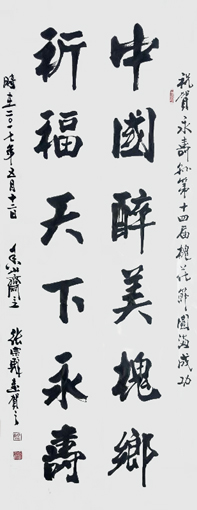 祝賀永壽縣第十四届槐花節圓滿成功
中國醉美槐鄉
祈福天下永壽
時在二〇一七年五月十二日